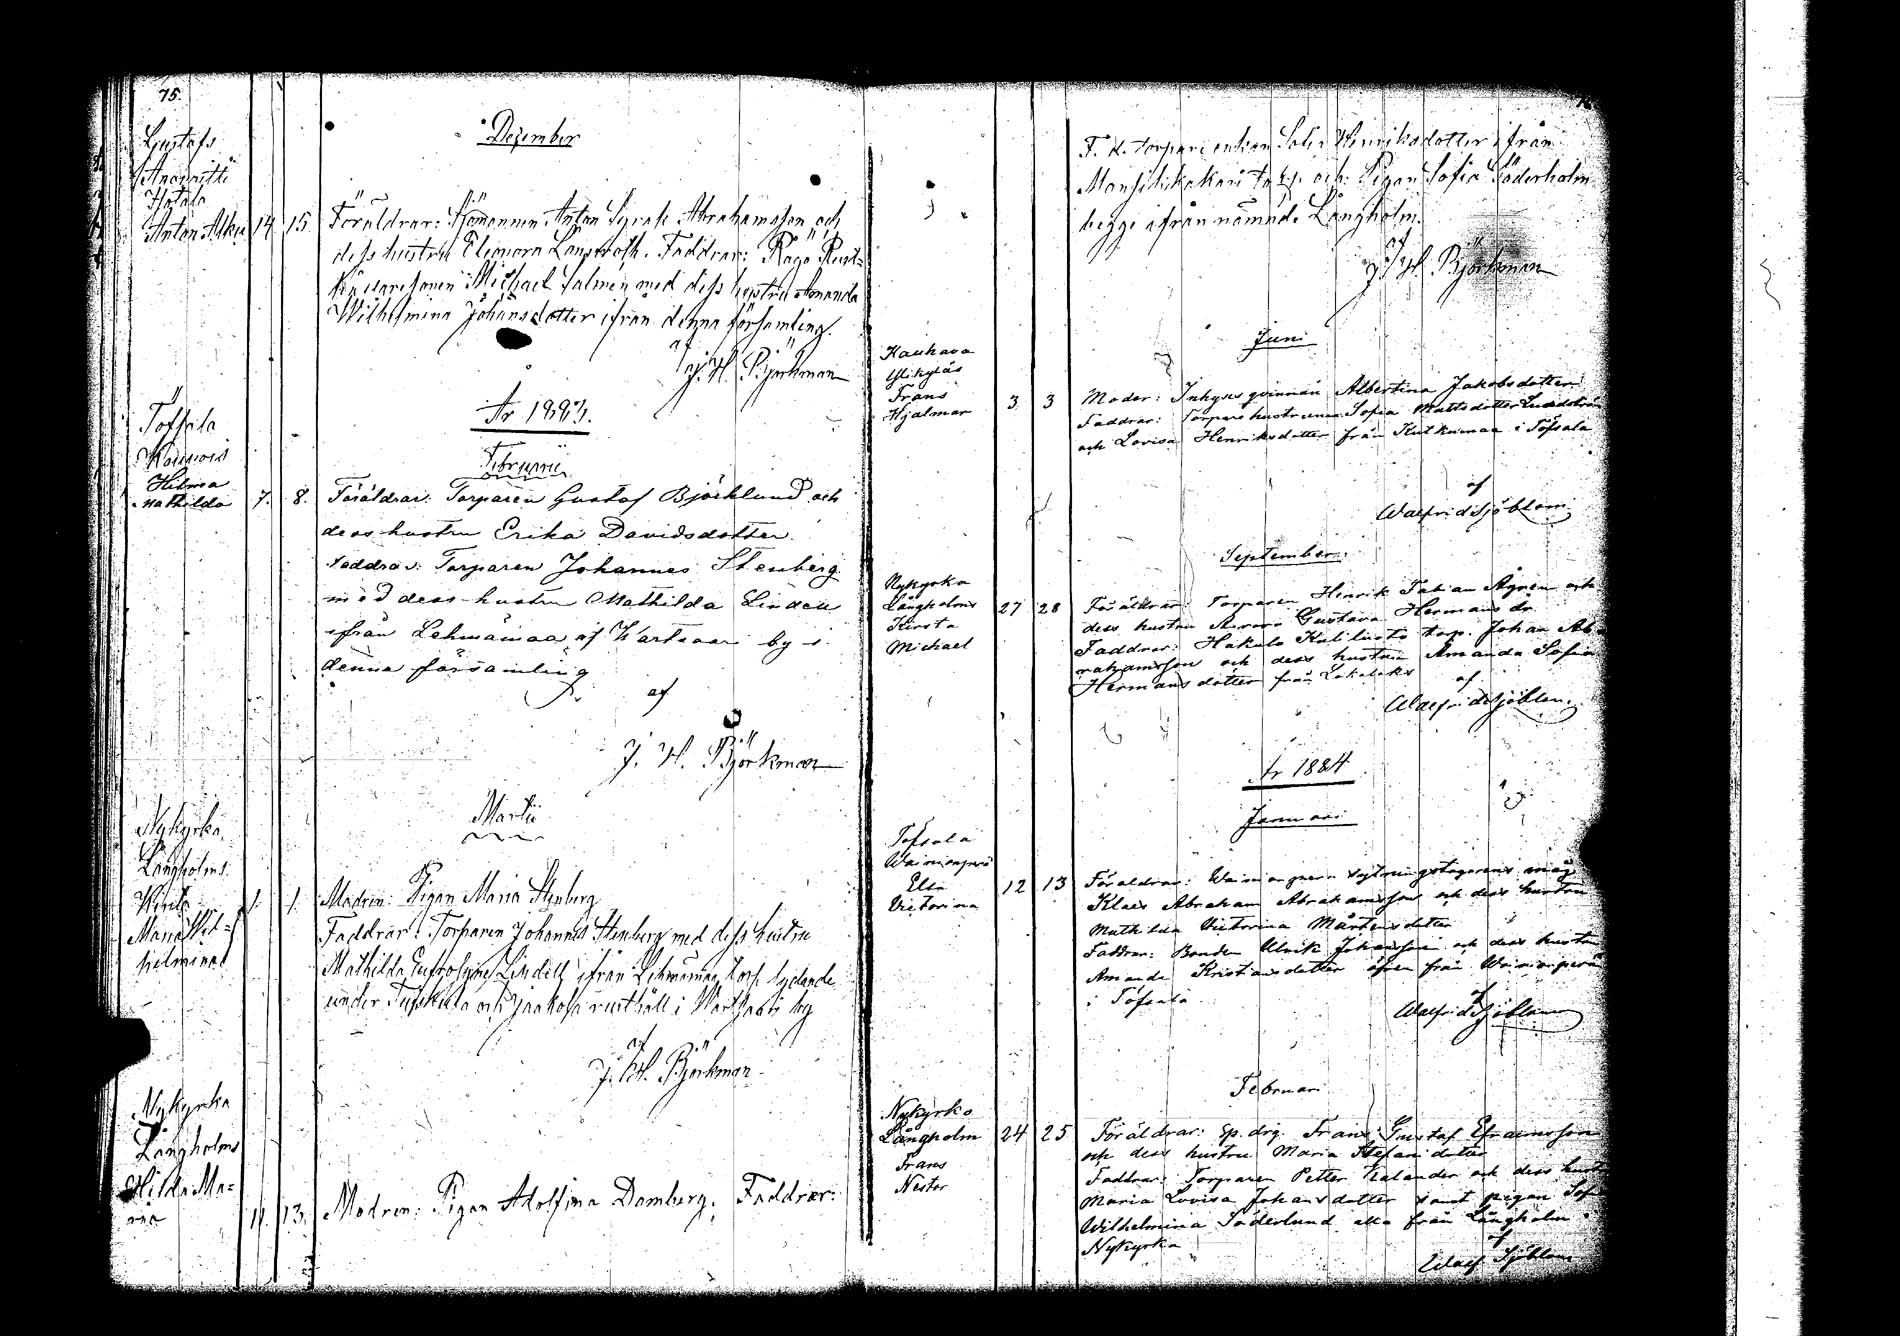 75.
Dezember
Gustafs
Anavitti
Hotala
Anton Alku 14 15.
Föräldrar: Sjömannen Anton Syrak Abrahamsson och
dess hustru Eleonora Långroth. Faddrar: Rägö Rust-
Michael Salmén med dess hustru Amanda
Wilhelmina Johansdotter ifrån denna församling.
af
J. H. Björkman
År 1883.
Februarii
Töfsala
Hilma
Mathilda 7. 8.
Föräldrar: Torparen Gustaf Björklund och
dess hustru Erika Davidsdotter.
Faddrar: Torparen Johannes Stenberg
med dess hustru Mathilda Lindell
ifrån Lehmämaa af Wartsaari by i
denna församling
af
J. H. Björkman
Martii
Nykyrka
Långholms
Maria Wil-
helmina 1. 1.
Modren: Pigan Maria Stenberg
Faddrar: Torparen Johannes Stenberg med dess hustru
Mathilda Eufrosyne Lindell ifrån Lehmämaa torp lydande
under och Jaakola rusthåll i Wartsaari by
af
J. H. Björkman
Nykyrka
Långholms
Hilda Ma-
ria 11. 13.
Modren: Pigan Adolfina Domberg. Faddrar:
F. d. torpari enkan Henriksdotter ifrån
torp och Pigan Sofia Söderholm
begge ifrån nämnde Långholm.
af
J. H. Björkman
Juni
Kauhava
Ylikyläs
Frans
Hjalmar 3 3
Moder: Inhyses qvinnan Albertina Jakobsdotter
Faddrar: Torpare hustrurna Sofia Mattsdotter
och Lovisa Henriksdotter från Kutkumaa i Töfsala
af
Walfrid Sjöblom
September
Nykyrka
Långholms
Kirsta
Michael 27 28
Föräldrar: Torparen Henrik Fabian Ågren och
dess hustru Aurora Gustava Hermansdr.
Faddrar: Hakula torp. Johan Ab-
rahamsson och dess hustru Amanda Sofia
Hermansdotter från Lokalaks
af
Walfrid Sjöblom
År 1884
Januari
Töfsala
Waimonperä
Elsa
Victorina 12 13
Föräldrar: måg
Klaes Abraham Abrahamsson och dess hustru
Mathilda Victorina Mårtensdotter
Faddrar: Bonden Ulrik Johansson och dess hustru
Amanda Kristiansdotter äfven från Waimonperä
i Töfsala
af
Walfrid Sjöblom
Februari
Nykyrko
Långholm
Frans
Nestor 24 25
Föräldrar: Sp. drg. Frans Gustaf Efraimsson
och dess hustru Maria Stefansdotter
Faddrar: Torparen Petter Kalander och dess hustru
Maria Lovisa Johansdotter samt pigan Sofia
Wilhelmina Söderlund alla från Långholm i
Nykyrka
af
Walf Sjöblom